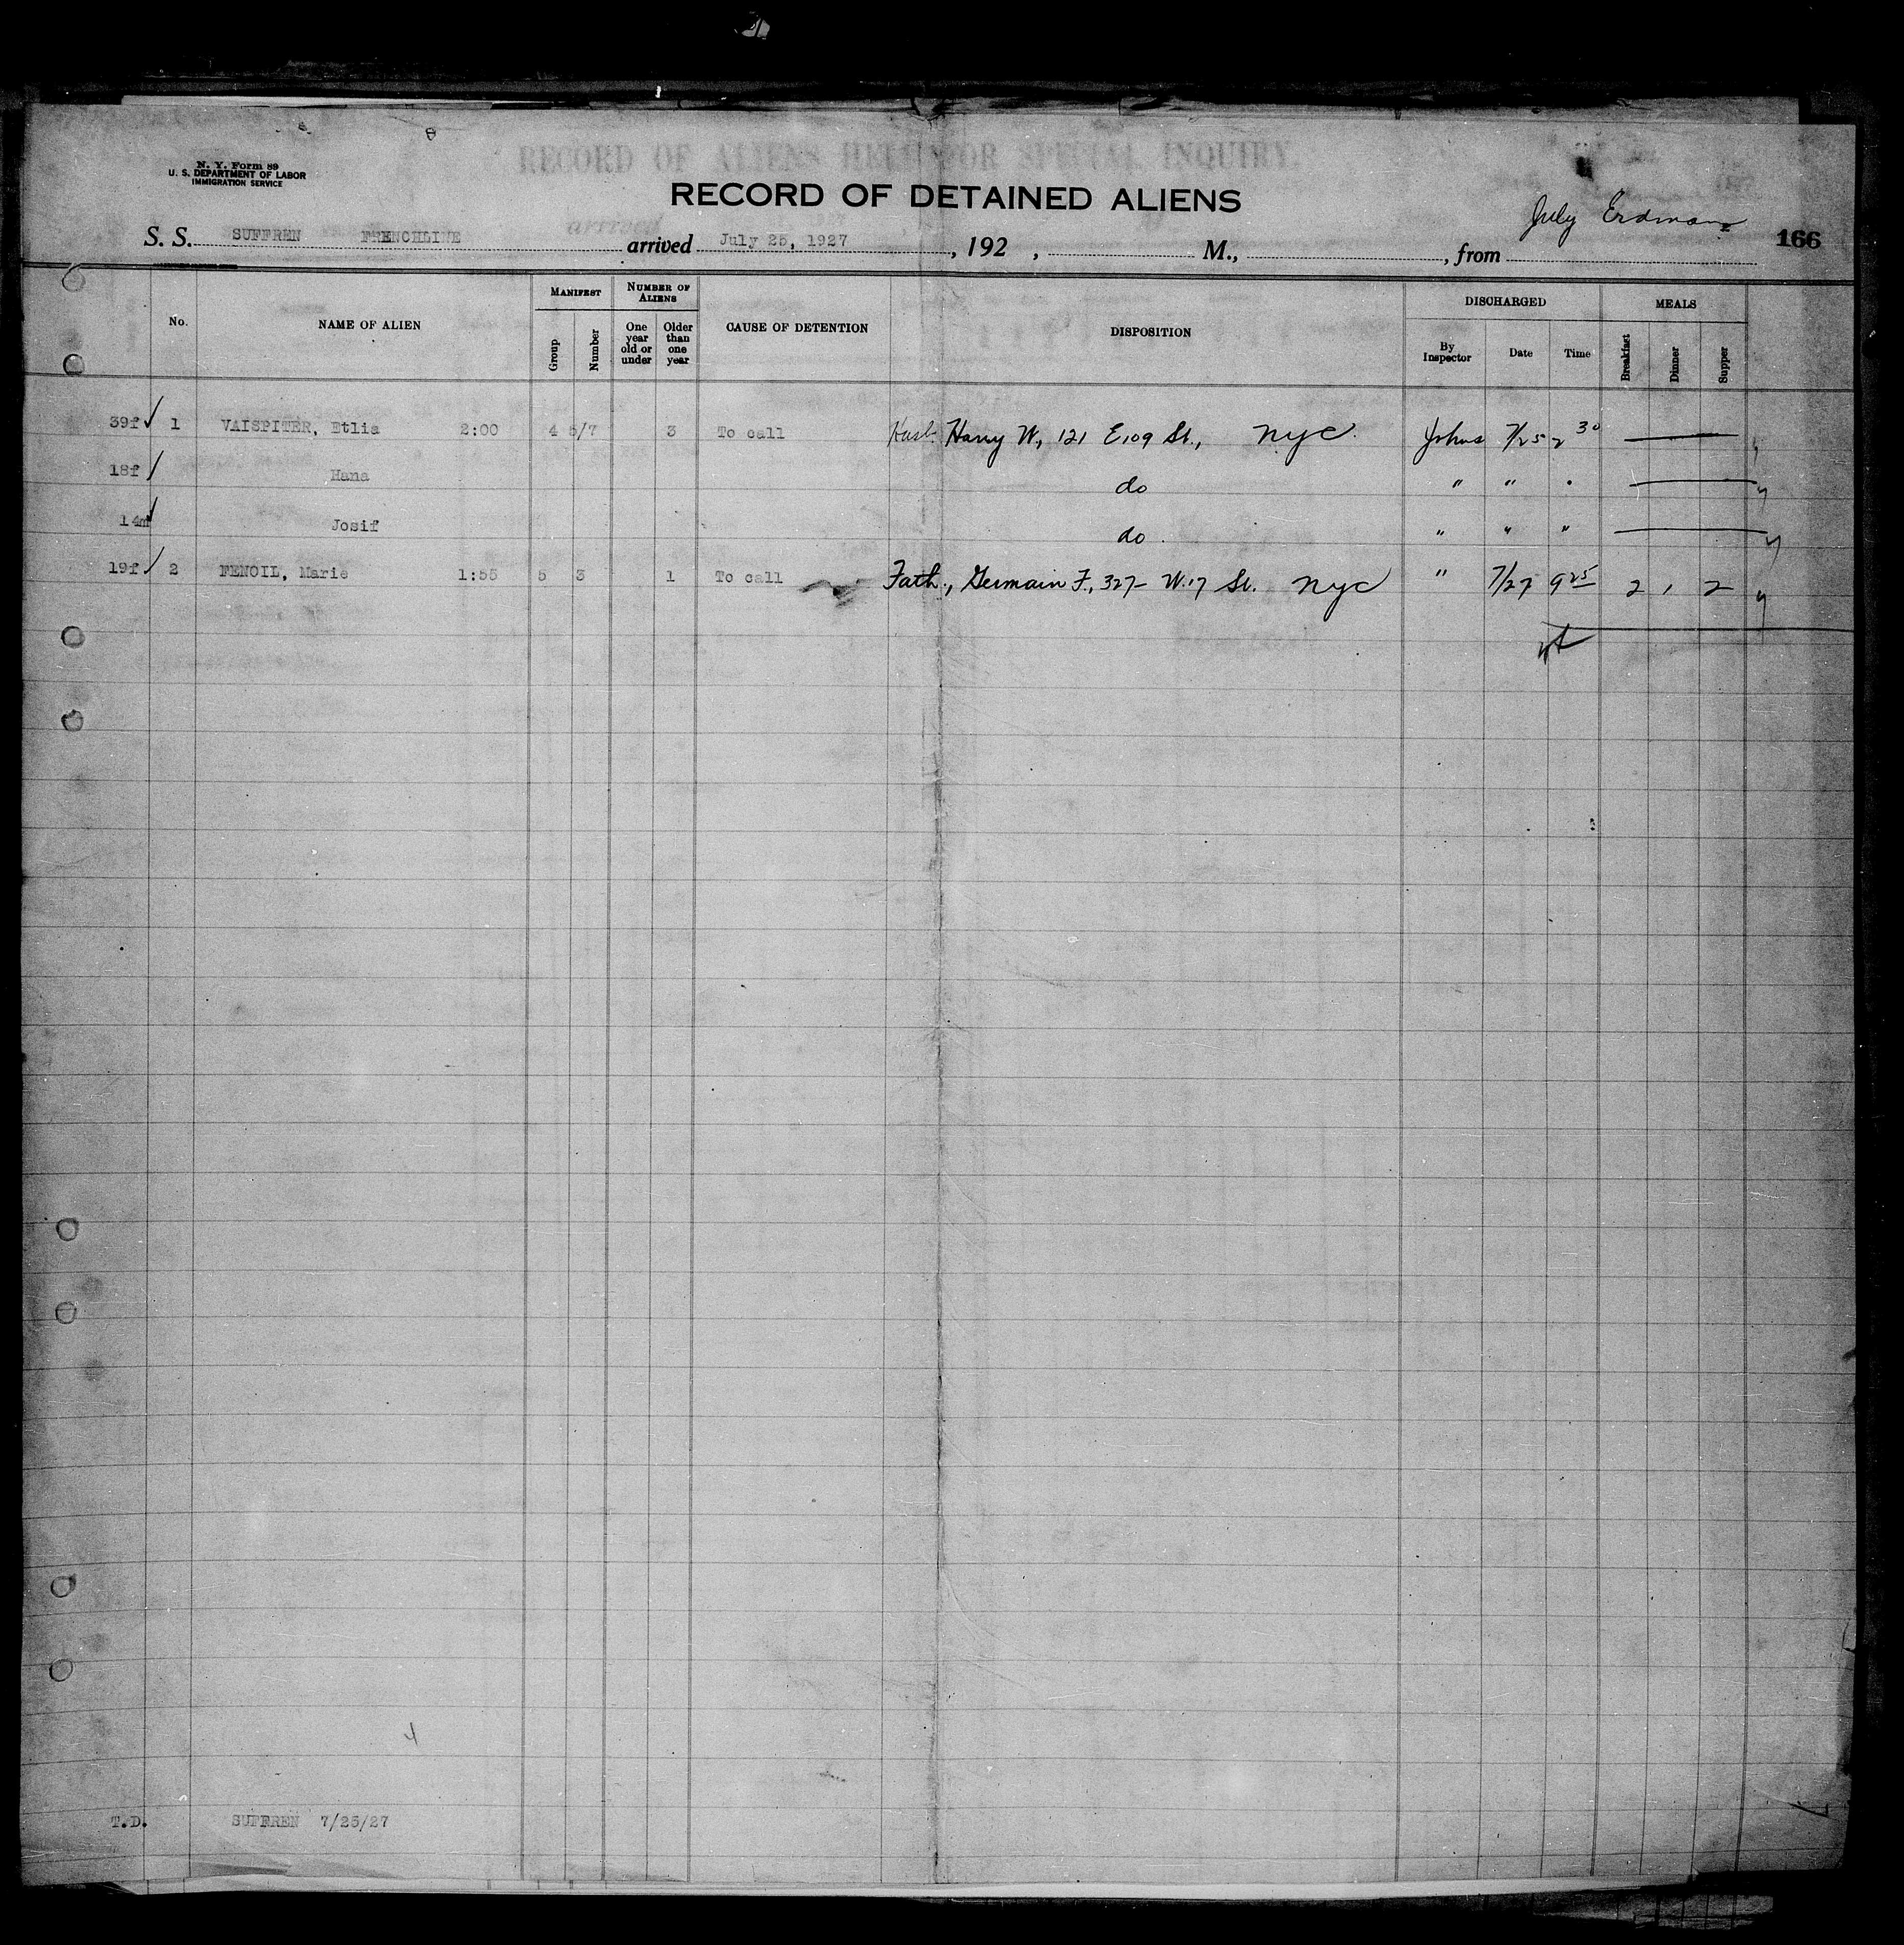 RECORD OF ALIENS HELD FOR SPECIAL INQUIRY.
N. Y. Form 89
U. S. DEPARTMENT OF LABOR
IMMIGRATION SERVICE
RECORD OF DETAINED ALIENS
July Erdman
S. S. SUFFREN FRENCHLINE arrived July 25, 1927, 192 , M., , from 166
No. NAME OF ALIEN MANIFEST Group Number NUMBER OF ALIENS One year old or under Older than one year CAUSE OF DETENTION DISPOSITION DISCHARGED By Inspector Date Time MEALS Breakfast Dinner Supper
39f 1 VAISPITER, Etlia 2:00 4 6/7 3 To call Husb. Harry W., 121 E 109 St., NYC. Johns 7/25 2 30
18f Hana do " " "
14m Josif do " " "
19f 2 FENOIL, Marie 1:55 5 3 1 To call Fath., Germain F., 327- W. 17 St. NYC " 7/27 9 25 2 1 2
4
T.D. SUFFREN 7/25/27